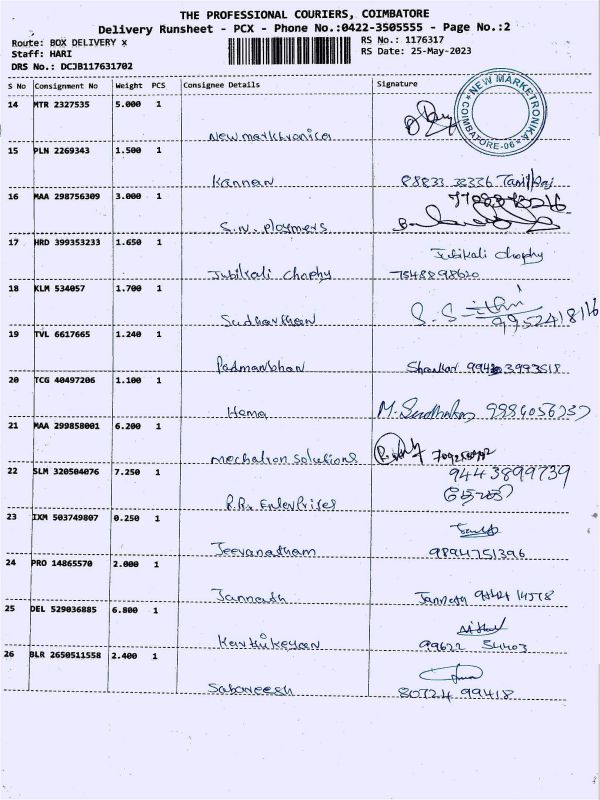 THE PROFESSIONAL COURIERS, COIMBATORE
Delivery Runsheet - PCX - Phone No.:0422-3505555 - Page No.:2
Route: BOX DELIVERY x
RS No.: 1176317
Staff: HARI
RS Date: 25-May-2023
DRS No.: DCJB117631702
S No Consignment No Weight PCS Consignee Details Signature
14 MTR 2327535 5.000 1
NEW MARKETRONIKA COIMBATORE-06
New marktronica
15 PLN 2269343 1.500 1
Kannan
16 MAA 298756309 3.000 1
S.N. Ploymers
17 HRD 399353233 1.650 1
Jubikali Chophy
Jubikali Chophy 7548898620
18 KLM 534057 1.700 1
Sudharthan 9952418116
19 TVL 6617665 1.240 1
Padmanbhan Shankar
20 TCG 40497206 1.100 1
Hema M. Sudhakar
21 MAA 299858001 6.200 1
Mechatron Solutions
22 SLM 320504076 7.250 1
9443899739
R.R. Enterprises
23 IXM 503749807 0.250 1
Jeevanatham 9894751396
24 PRO 14865570 2.000 1
Jannath Jannath
25 DEL 529036885 6.800 1
Karthikeyan 99622 54403
26 BLR 2650511558 2.400 1
Sabareesh 80724 99418